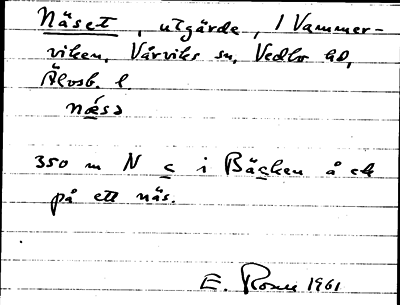 Näset, utgärde, i Vammer-
viken, Vårviks sn, Vedbo hd,
Älvsb. l.
næ̀sə
350 m N c i Bäcken å ek
på ett näs.
E. 1961